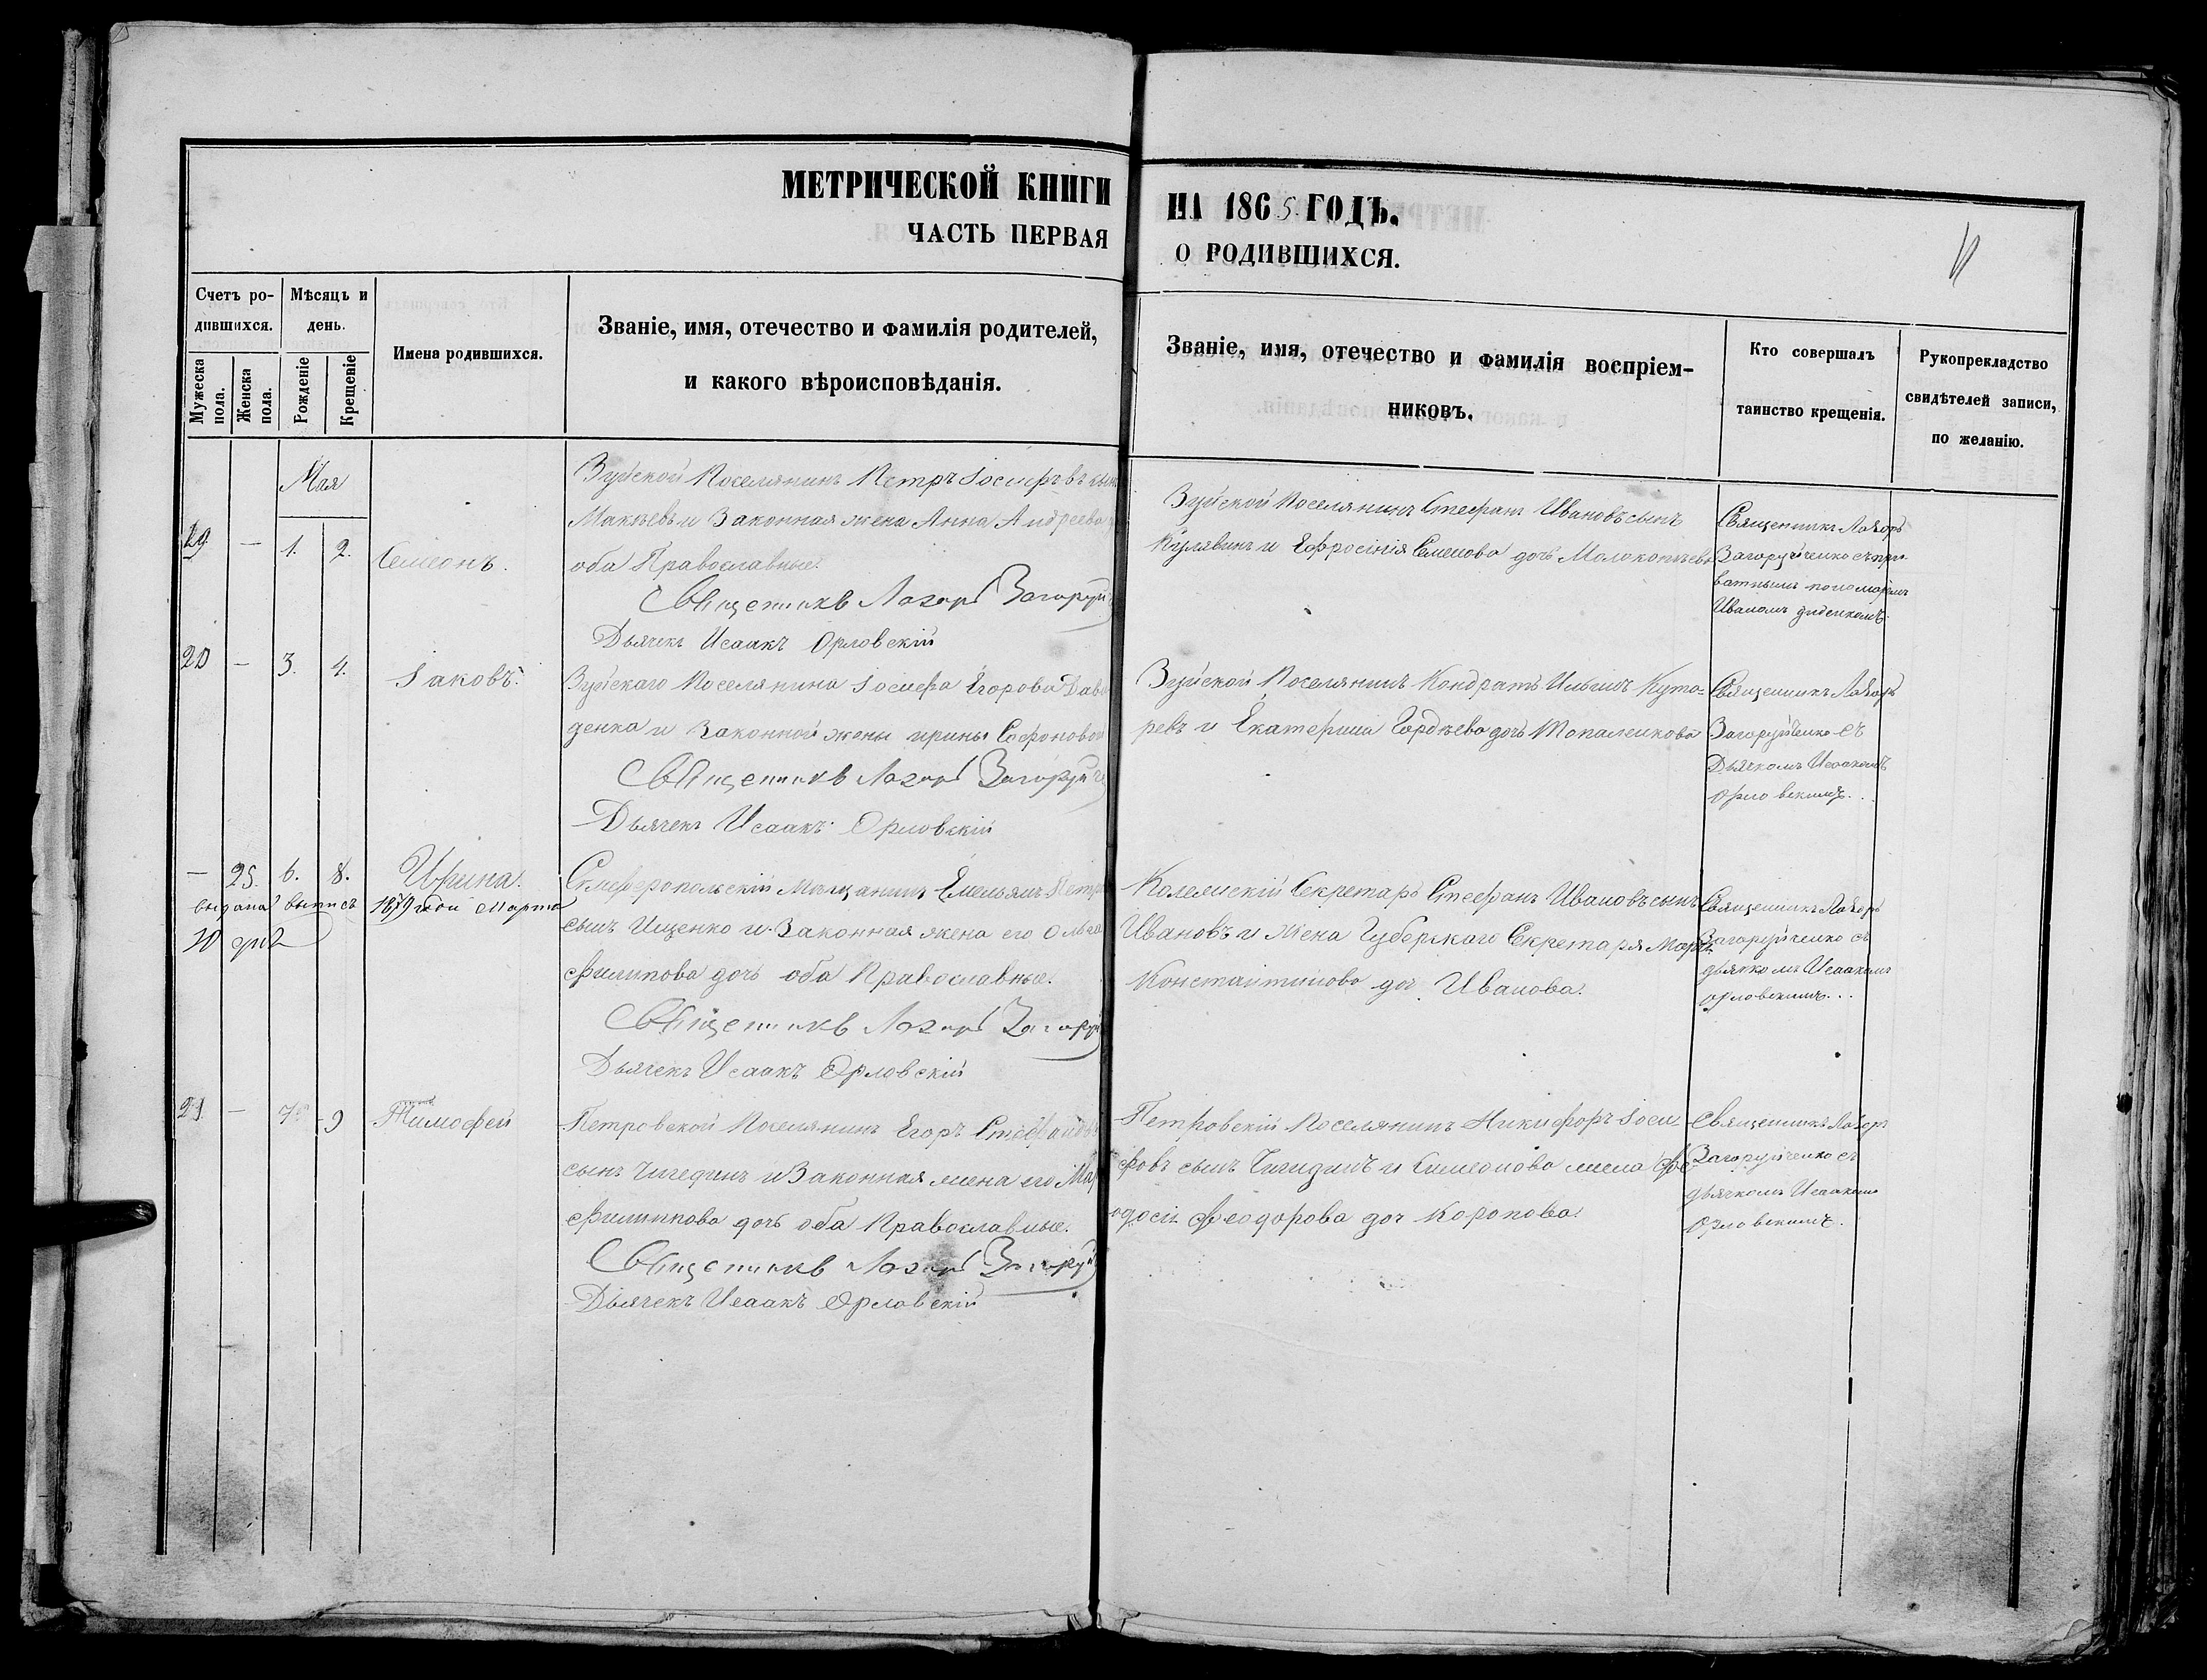 МЕТРИЧЕСКОЙ КНИГИ
ЧАСТЬ ПЕРВАЯ
НА 1865 ГОДЪ.
О РОДИВШИХСЯ.
Счетъ ро-
дившихся.
Мѣсяцъ и
день.
Мужеска
пола.
Женска
пола.
Рожденіе
Крещеніе
Имена родившихся.
Званіе, имя, отечество и фамилія родителей,
и какого вѣроисповѣданія.
Званіе, имя, отечество и фамилія воспріем-
никовъ.
Кто совершалъ
таинство крещенія.
Рукоприкладство
свидѣтелей записи,
по желанію.
Мая
19. — 1. 2. Симеонъ.
Зуйской Поселянинъ Петръ Іосифовъ сынъ
и Законная жена Анна Андреева
оба Православные.
Священникъ Лазарь Загоруй
Дьячекъ Исаакъ Орловскій
Зуйской Поселянинъ Стефанъ Ивановъ сынъ
Кулявинъ и Ефросінія Семенова дочь
Священникъ Лазарь
Загоруйченко съ при-
ватнымъ пономаремъ
Иваномъ
20 — 3. 4. Іаковъ.
Зуйскаго Поселянина Іосифа Егорова Дави
денка и Законной жены Ирины Софоновой
Священникъ Лазарь Загоруйч
Дьячекъ Исаакъ Орловскій
Зуйской Поселянинъ Кондратъ Ильинъ Куто-
ревъ и Екатерина Гордѣева дочь Топаленкова
Священникъ Лазарь
Загоруйченко съ
Дьячкомъ Исаакомъ
Орловскимъ.
— 25. 6. 8. Ирина.
выдана выпись 1879 года Марта
10 дня
Симферопольскій Мещанинъ Емельянъ Петр
сынъ Ищенко и Законная жена его Ольга
Филипова дочь оба Православные.
Священникъ Лазарь Загоруй
Дьячекъ Исаакъ Орловскій
Колежскій Секретарь Стефанъ Ивановъ сынъ
Ивановъ и жена Губерскаго Секретаря
Константинова доч Иванова.
Священникъ Лазарь
Загоруйченко съ
дьячкомъ Исаакомъ
Орловскимъ...
21 — 7. 9 Тимофей
Петровской Поселянинъ Егоръ Стефановъ
сынъ Чигединъ и Законная жена его Мар
Филиппова дочь оба Православные.
Священникъ Лазарь Загоруй
Дьячекъ Исаакъ Орловскій
Петровскій Поселянинъ Никифоръ Іоси
фовъ сынъ Чигидинъ и Симеонова жена Фе
одосія Феодорова доч Коропова.
Священникъ Лазарь
Загоруйченко съ
дьячкомъ Исаакомъ
Орловскимъ.